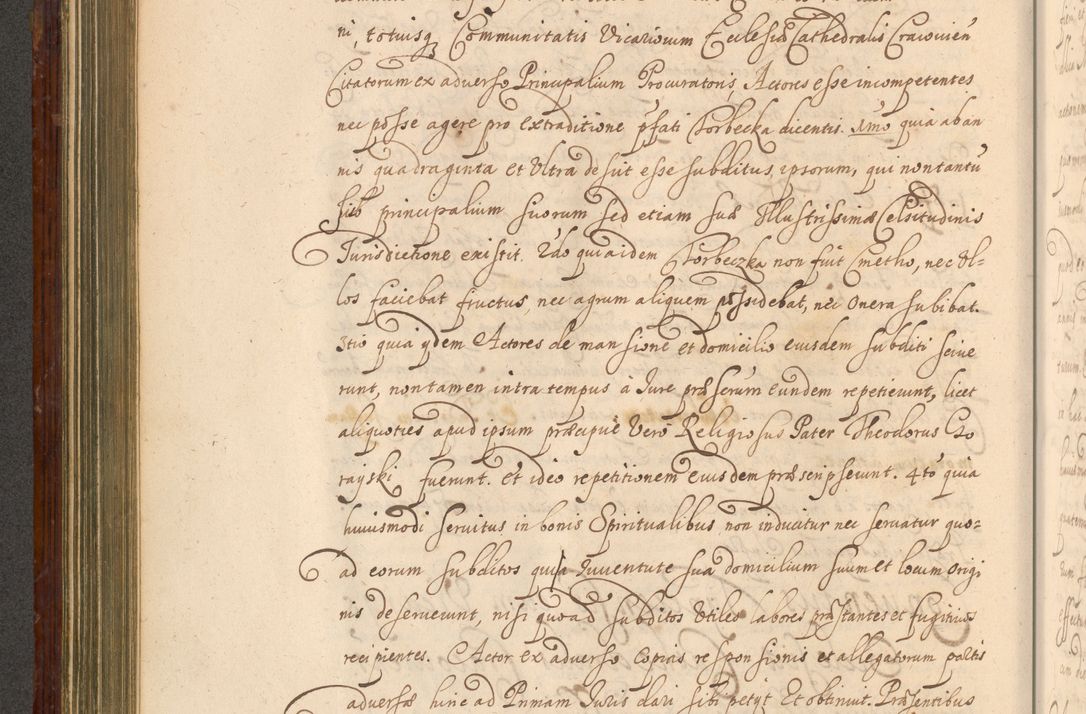 ni, totiusq Communitatis Vicariorum Ecclesiæ Cathedralis Cracovien
Citatorum ex adverso Principalium Procuratoris, Actores esse incompetentes
nec posse agere pro extraditione pfati Torbecka dicentis. 1mo quia ab an
nis quadraginta et Ultra desiit esse subditus ipsorum, qui non tantu
sub principalium suorum sed etiam suæ Illustrissimæ Celsitudinis
Jurisdictione existit. 2do quia idem Torbeczka non fuit Cmetho, nec Ul-
los faciebat fructus, nec agrum aliquem possidebat, nec Onera subibat.
3tio quia ydem Actores de mansione et domicilio eiusdem subditi scive
runt, non tamen intra tempus à Jure præsscrum eundem repetierunt, licet
aliquoties apud ipsum præcipuè Verò Religiosus Pater Theodorus Go
rayski fuerunt. Et ideo repetitionem eiusdem præscripserunt. 4tò quia
huiusmodi servitus in bonis Spiritualibus non inducitur nec servatur quo=
ad eorum subditos qui à Juventute sua domicilium suum et locum Origi
nis deseruerunt, nisi quoad subditos Utiles labores præstantes et fugitivos
recipientes. Actor ex adverso copiis responsionis et allegatorum partis
adversæ hinc ad Primam Juris dari sibi petyt Et obtinuit. Præsentibus